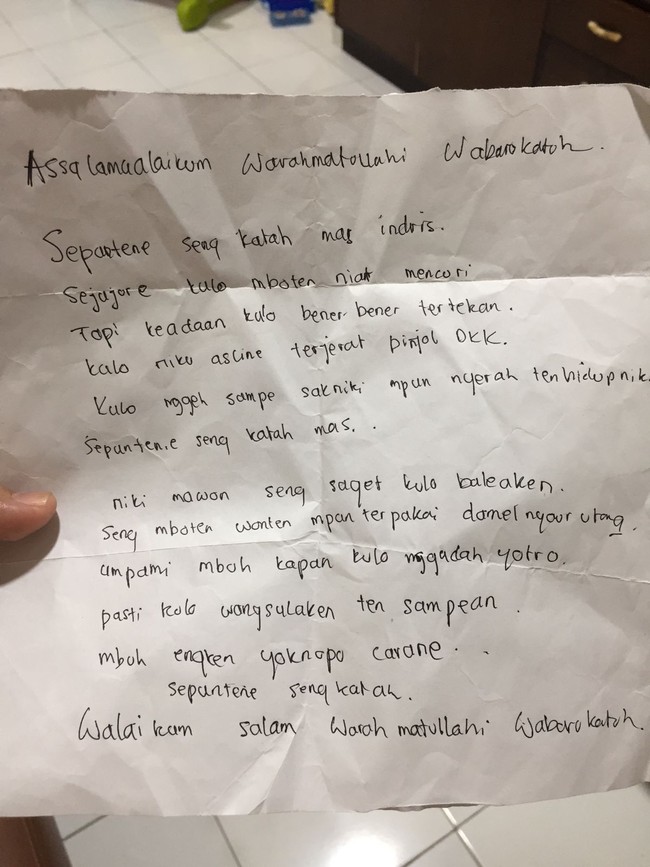 Assalamualaikum Warahmatullahi Wabarokatoh.
Sepantene seng katah mas indris.
Sejajore kulo mboten niat mencori
Tapi keadaan kulo bener-bener tertekan.
kalo niku asline terjerat pinjol OKK.
Kulo nggeh sampe sakniki mpun nyerah ten hidup nik
Sepuntene seng katah mas. .
niki mawon seng saget kulo baleaken.
Seng mboten wonten mpan terpakai damel nyaur utang.
umpami mboh kapan kulo nggadah yotro.
pasti kulo wangsulaken ten sampean.
mboh engken yoknopo carane. .
sepuntene seng katah.
Walaikum salam Warahmatullahi Waborokatoh.